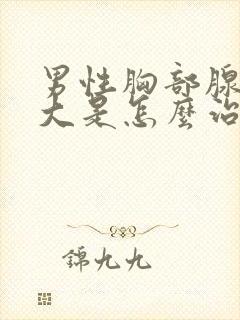 男性胸部腺
大是怎麼治
錦九九